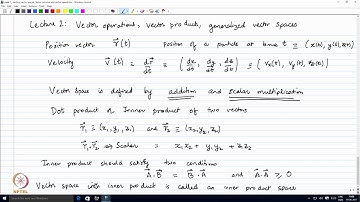 Lecture 2: Vector operations, vector product, generalized vector spaces
Position vector r⃗(t) position of a particle at time t ≡ (x(t), y(t), z(t))
Velocity v⃗(t) = dr⃗/dt = (dx/dt, dy/dt, dz/dt) ≡ (Vx(t), Vy(t), Vz(t))
Vector space is defined by addition and scalar multiplication
Dot product or Inner product of two vectors
r⃗₁ ≡ (x₁, y₁, z₁) and r⃗₂ ≡ (x₂, y₂, z₂)
r⃗₁·r⃗₂ ⇒ Scalar = x₁x₂ + y₁y₂ + z₁z₂
Inner product should satisfy two conditions
A⃗·B⃗ = B⃗·A⃗ and A⃗·A⃗ ≥ 0
Vector space with inner product is called an inner product space